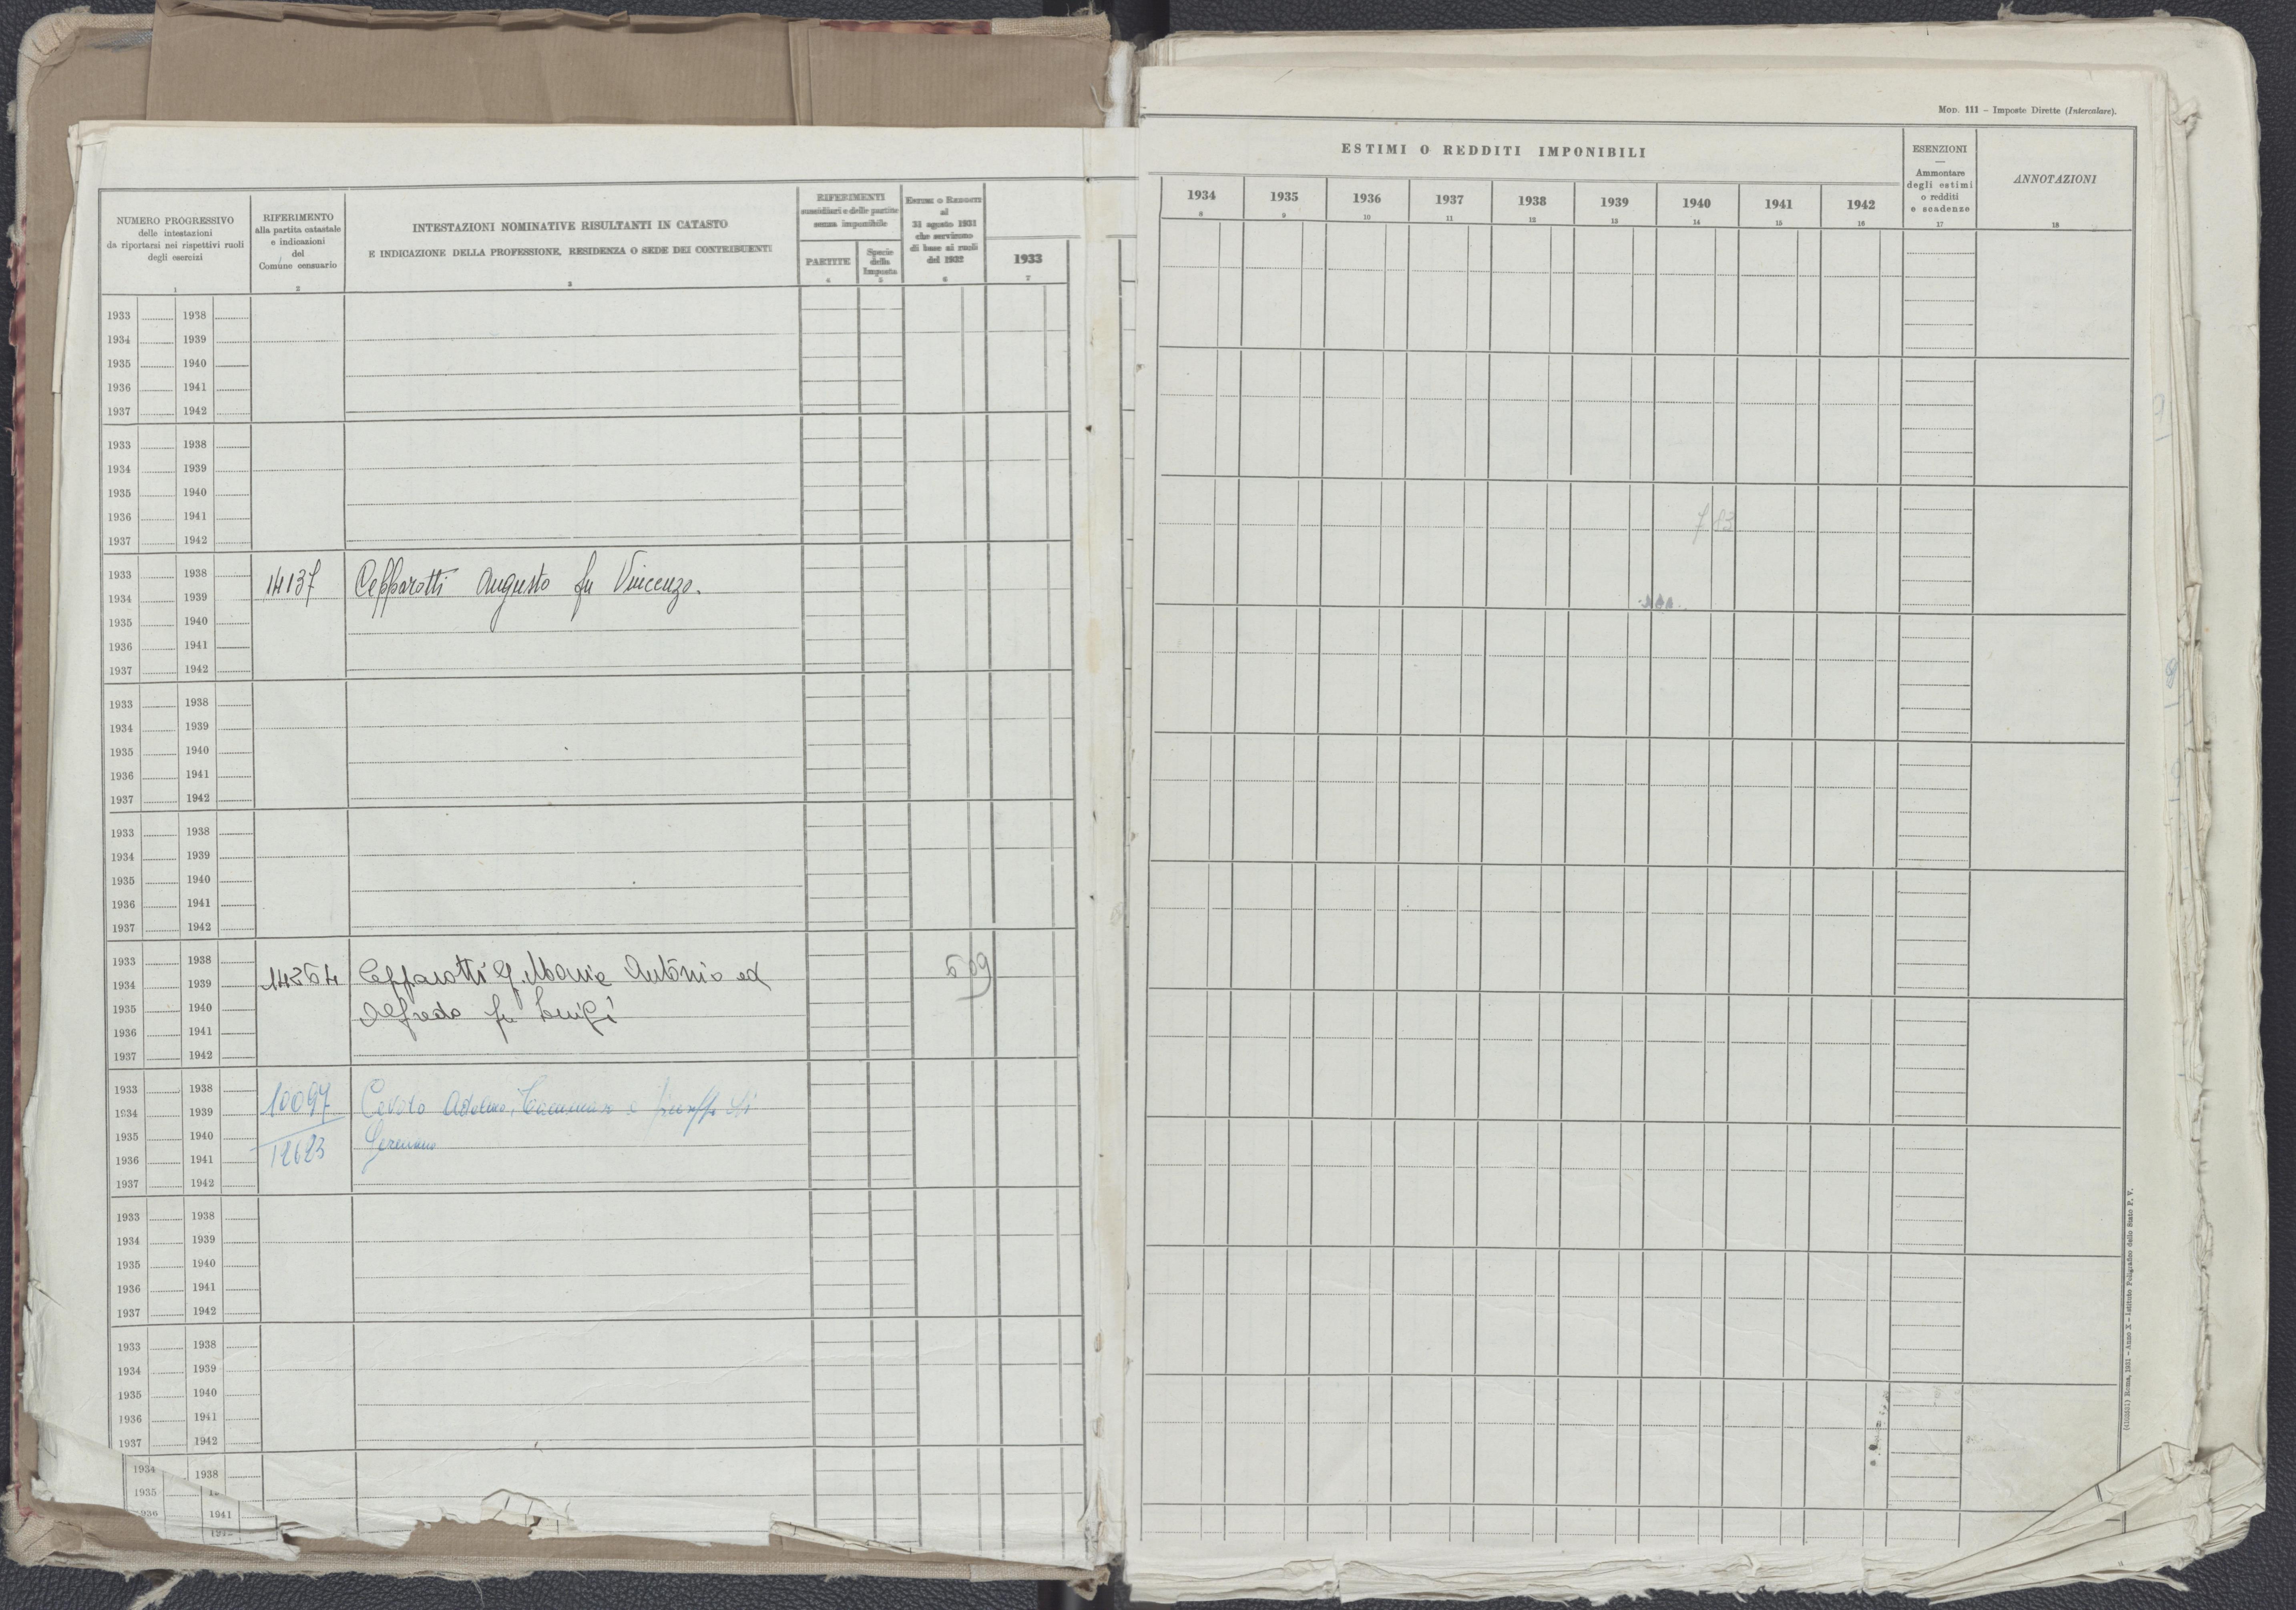 Mod. 111 – Imposte Dirette (Intercalare).
NUMERO PROGRESSIVO
delle intestazioni
da riportarsi nei rispettivi ruoli
degli esercizi
1
RIFERIMENTO
alla partita catastale
e indicazioni
del
Comune censuario
2
INTESTAZIONI NOMINATIVE RISULTANTI IN CATASTO
E INDICAZIONE DELLA PROFESSIONE, RESIDENZA O SEDE DEI CONTRIBUENTI
3
RIFERIMENTI
sussidiari e delle partite
senza imponibile
PARTITE
4
Specie
della
Imposta
5
Estimi o Redditi
al
31 agosto 1931
che servirono
di base ai ruoli
del 1932
6
1933
7
ESTIMI O REDDITI IMPONIBILI
1934 1935 1936 1937 1938 1939 1940 1941 1942
8 9 10 11 12 13 14 15 16
ESENZIONI
—
Ammontare
degli estimi
o redditi
e scadenze
17
ANNOTAZIONI
18
1933 1938
1934 1939
1935 1940
1936 1941
1937 1942
1933 1938
1934 1939
1935 1940
1936 1941
1937 1942
1933 1938
14137 Cepparotti Augusto fu Vincenzo.
1934 1939
1935 1940
1936 1941
1937 1942
1933 1938
1934 1939
1935 1940
1936 1941
1937 1942
1933 1938
1934 1939
1935 1940
1936 1941
1937 1942
1933 1938
Cepparotti G. Maria Antonio ed
1934 1939
1935 1940
Alfredo fu Luigi
1936 1941
1937 1942
1933 1938
10097
1934 1939
1935 1940
12623 Germano
1936 1941
1937 1942
1933 1938
1934 1939
1935 1940
1936 1941
1937 1942
1933 1938
1934 1939
1935 1940
1936 1941
1937 1942
1934 1938
1935
1941
Roma, 1931 – Anno X – Istituto Poligrafico dello Stato P. V.